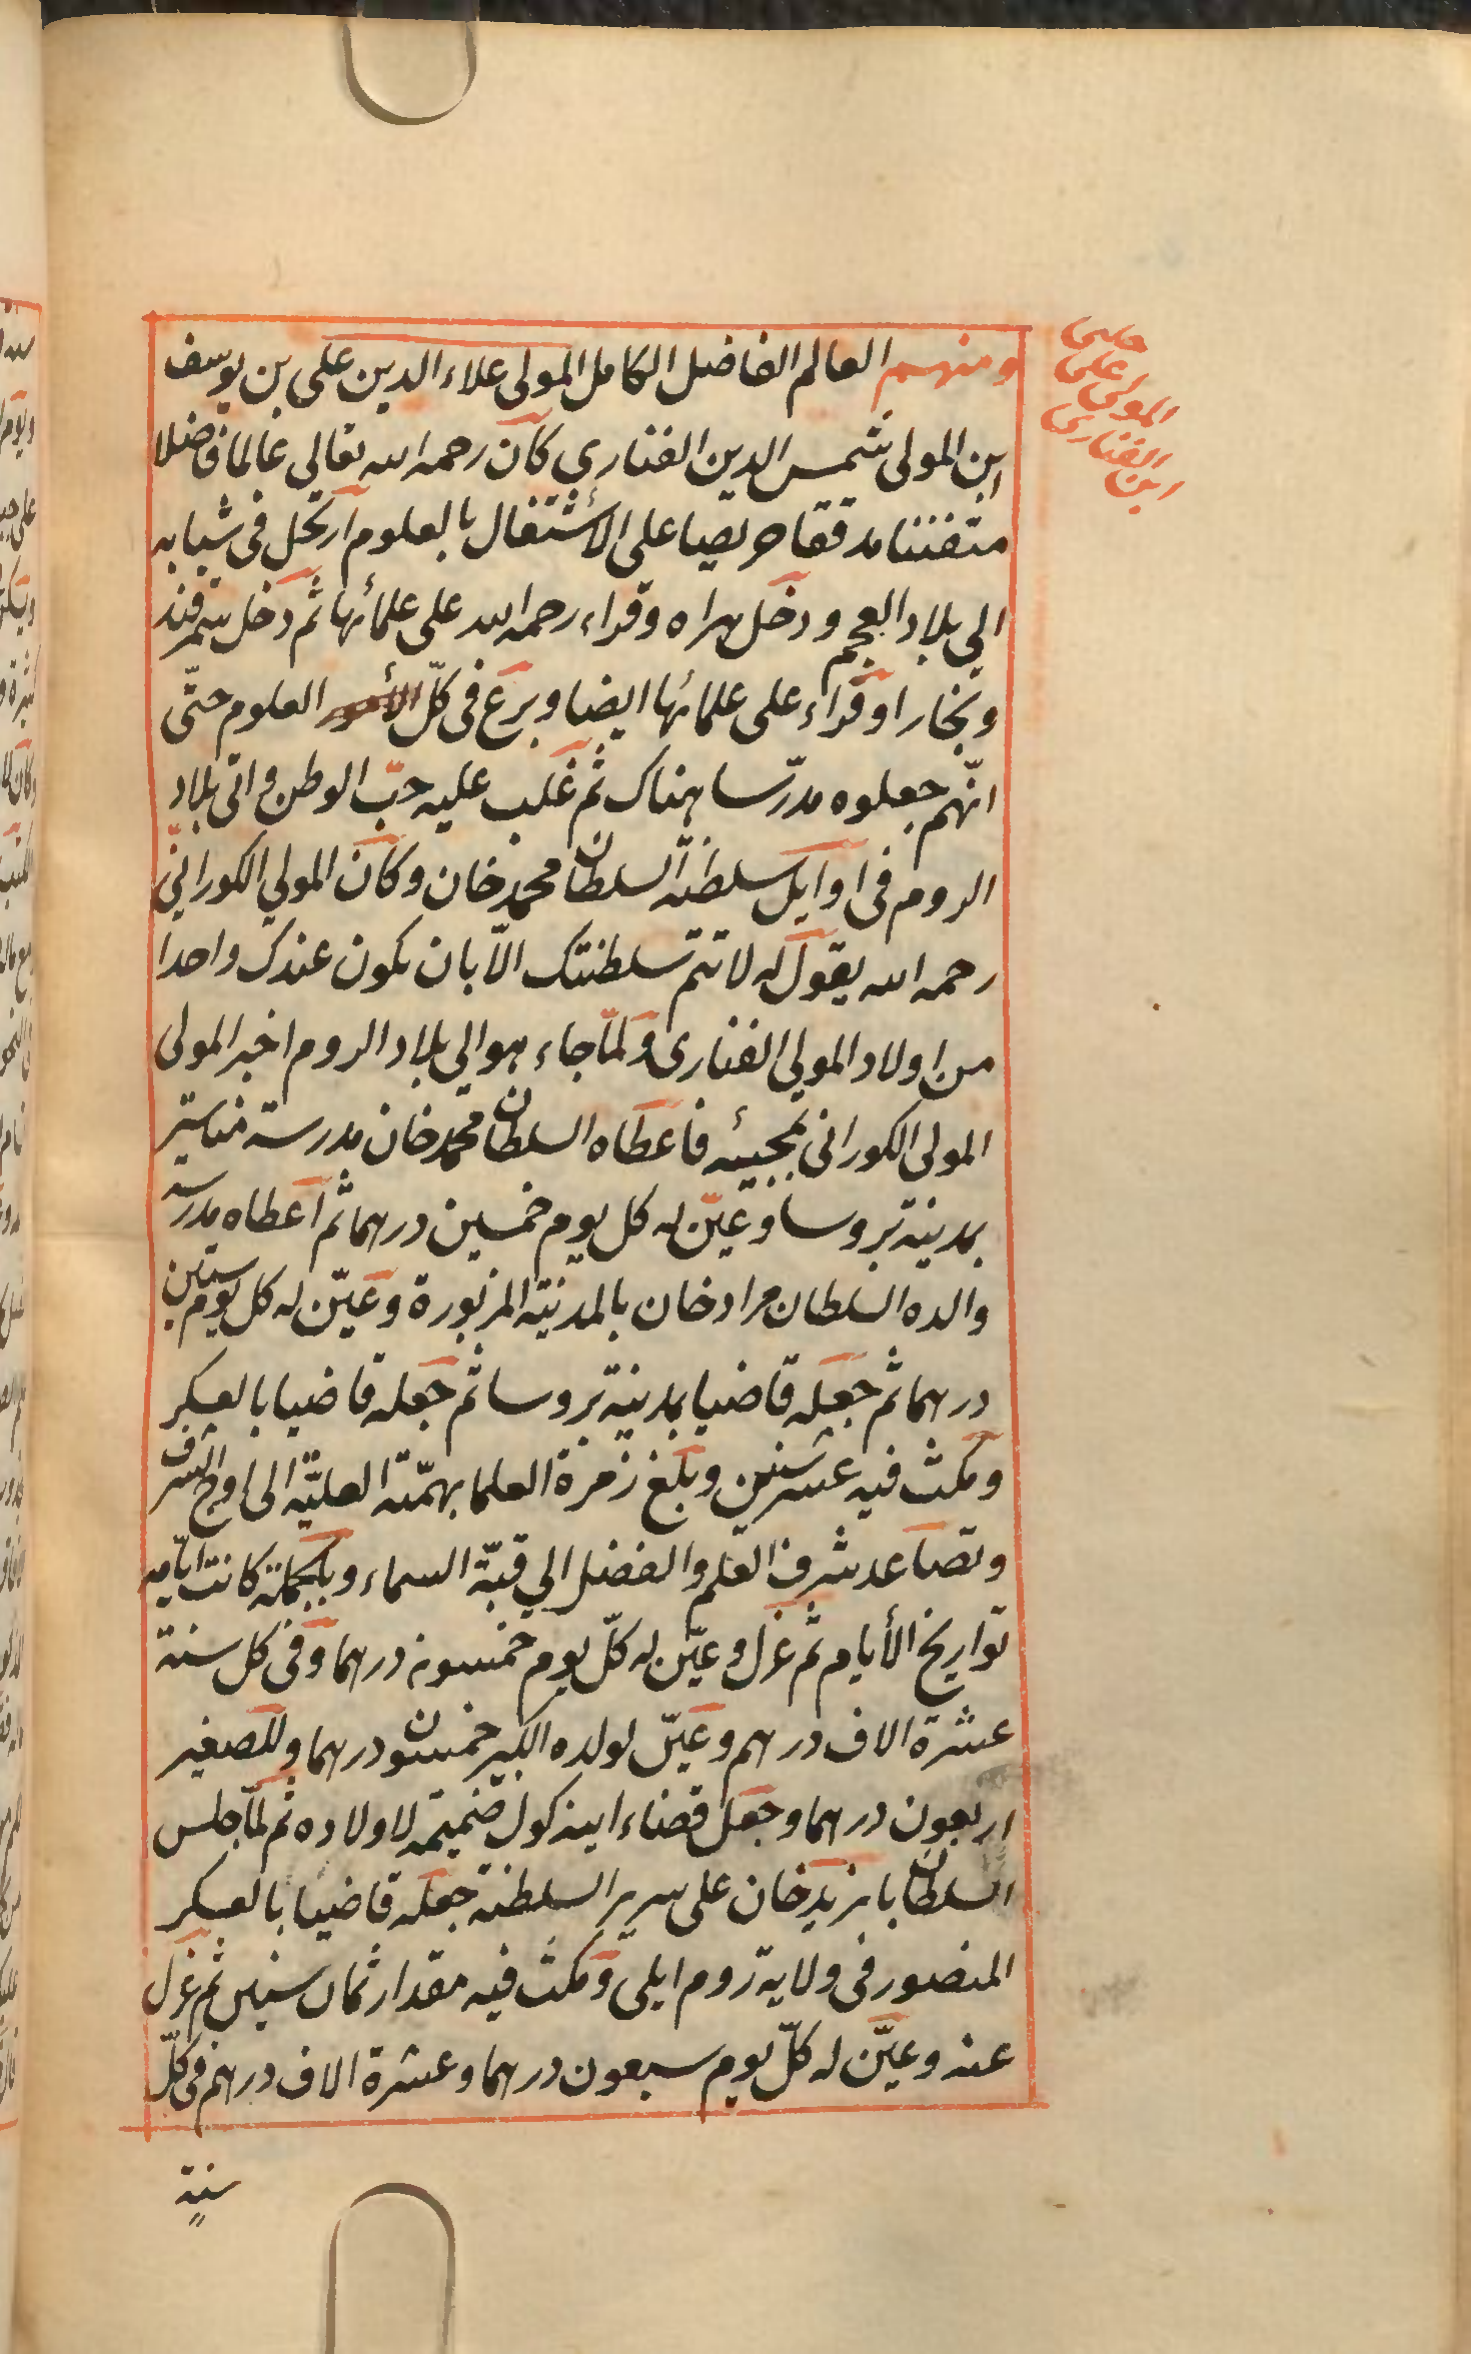 ومنهم العالم الفاضل الكامل المولى علاء الدين على بن يوسف
ابن المولى شمس الدين الفنارى كان رحمه الله تعالى عالما فاضلا
متفننا مدققا حريصا على الأشتغال بالعلوم ارتحل فى شبابه
الي بلاد العجم ودخل هراه وقراء رحمه الله على علمائها ثم دخل سمرقند
وبخارا وقراء على علمائها ايضا وبرع فى كلّ الأمور العلوم حتّى
انّهم جعلوه مدرّسا هناك ثم غلب عليه حبّ الوطن واتى بلاد
الروم فى اوايل سلطنة السلطان محمد خان وكان المولي الكورانىّ
رحمه الله يقول له لا تتم سلطنتك الاّ بان يكون عندك واحدا
من اولاد المولي الفنارى ولمّا جاء هو الي بلاد الروم اخبر المولى
المولى الكورانى بمجيئه فاعطاه السلطان محمد خان مدرسة مناستر
بمدينة بروسا وعيّن له كل يوم خمسين درهما ثم اعطاه مدرسة
والده السلطان مراد خان بالمدينة المزبورة وعيّن له كل يوم ستين
درهما ثم جعله قاضيا بمدينة بروسا ثم جعله قاضيا بالعسكر
ومكث فيه عشر سنين وبلغ زمرة العلما بهمّته العليّة الى اوج الشرف
وتصاعد شرف العلم والفضل الي قبّة السماء وبالجملة كانت ايّامه
تواريخ الأيام ثم عزل وعيّن له كلّ يوم خمسون درهما وفى كل سنة
عشرة الاف درهم وعيّن لولده الكبير خمسون درهما وللصغير
اربعون درهما وجعل قضاء اينه كول ضميمة لاولاده ثم لمّا جلس
السلطان بايزيد خان على سرير السلطنة جعله قاضيا بالعسكر
المنصور فى ولاية روم ايلى ومكث فيه مقدار ثمان سنين ثم عزل
عنه وعيّن له كلّ يوم سبعون درهما وعشرة الاف درهم فى كلّ
سنة
المولى على
الفنارى
ابن